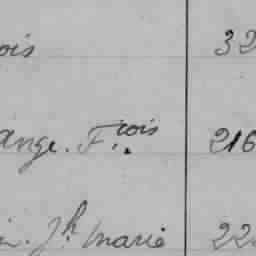 ois 32
ange. F.rois 216
in. Jh. Marie 22